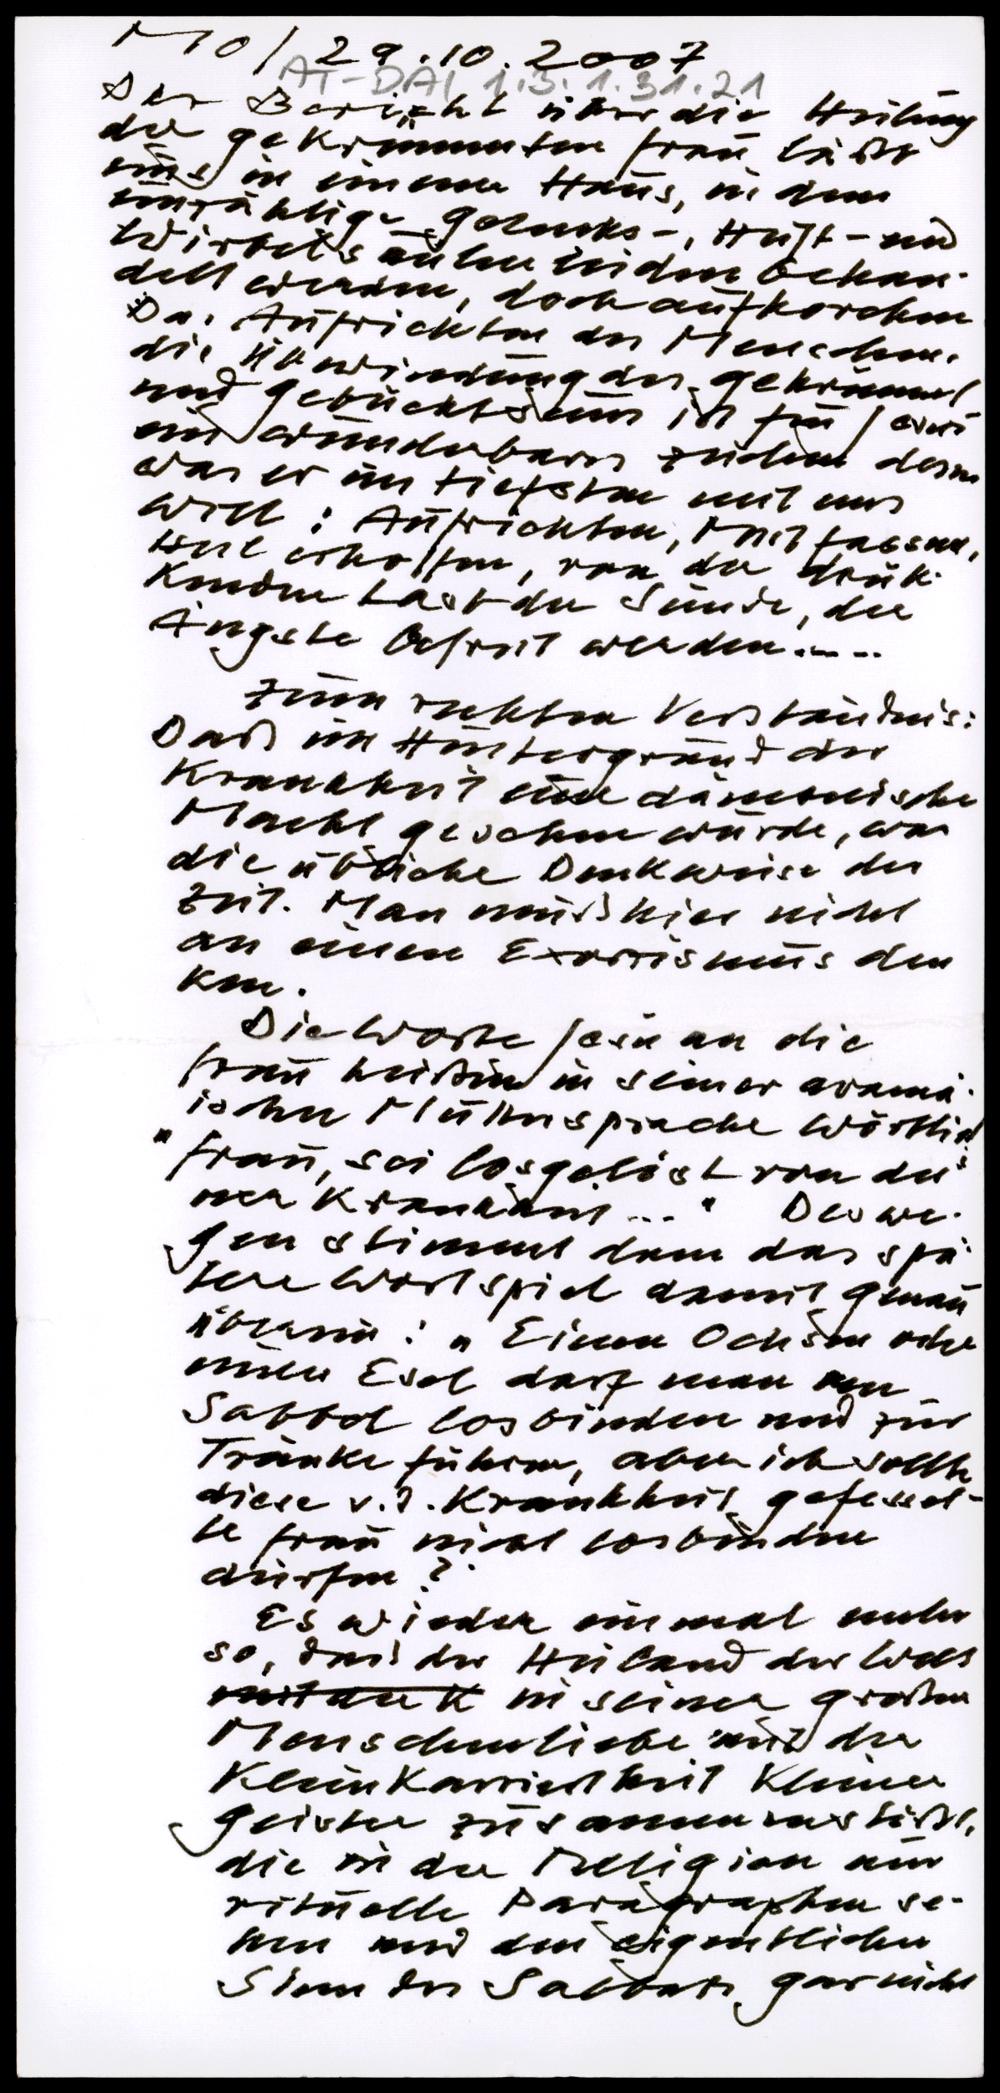 MO/29.10.2007
AT-DAI 1.3.1.31.21
Der Bericht über die Heilung
der gekrümmten Frau läßt
uns in einem Haus, in dem
unzählige Gelenks-, Hüft- und
Wirbelsäulenleiden behan-
delt werden, doch aufhorchen.
Das Aufrichten des Menschen,
die Überwindung des gekrümmt
und gebückt seins ist für Jesus
ein wunderbares Zeichen dessen
was er im tiefsten mit uns
will: Aufrichten, Mut fassen,
Heil erhoffen, von der drük-
kenden Last der Sünde, der
Ängste befreit werden.....
Zum rechten Verständnis:
Daß im Hintergrund der
Krankheit eine dämonische
Macht gesehen wurde, war
die übliche Denkweise der
Zeit. Man muß hier nicht
an einen Exorzismus den
ken.
Die Worte Jesu an die
Frau heißen in seiner aramä-
ischen Muttersprache wörtlich
"Frau, sei losgelöst von dei-
ner Krankheit..." Deswe-
gen stimmt dann das spä-
tere Wortspiel damit genau
überein: "Einen Ochsen oder
einen Esel darf man am
Sabbat losbinden und zur
Tränke führen, aber ich sollte
diese v.d. Krankheit gefessel-
te Frau nicht losbinden
dürfen?
Es wieder einmal mehr
so, daß der Heiland der Welt
in seiner großen
Menschenliebe mit der
Kleinkariertheit kleiner
Geister zusammenstößt,
die in der Religion nur
rituelle Paragraphen se-
hen und den eigentlichen
Sinn des Sabbats gar nicht